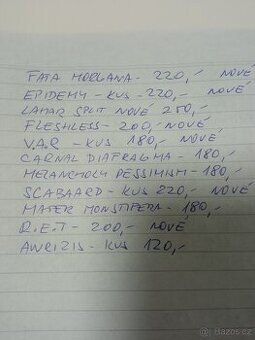 FATA MORGANA - 220,- NOVÉ
EPIDEMY - KUS - 220,- NOVÉ
LAHAR SPLIT NOVÉ 250,-
FLESHLESS - 200,- NOVÉ
V.A.R - KUS 180,- NOVÉ
CARNAL DIAFRAGMA - 180,-
MELANCHOLY PESSIMISM - 180,-
SCABAARD - KUS 220,- NOVÉ
MATER MONSTIFERA - 180,-
D.E.T - 200,- NOVÉ
AWRIZIS - KUS 120,-
Bazos.cz